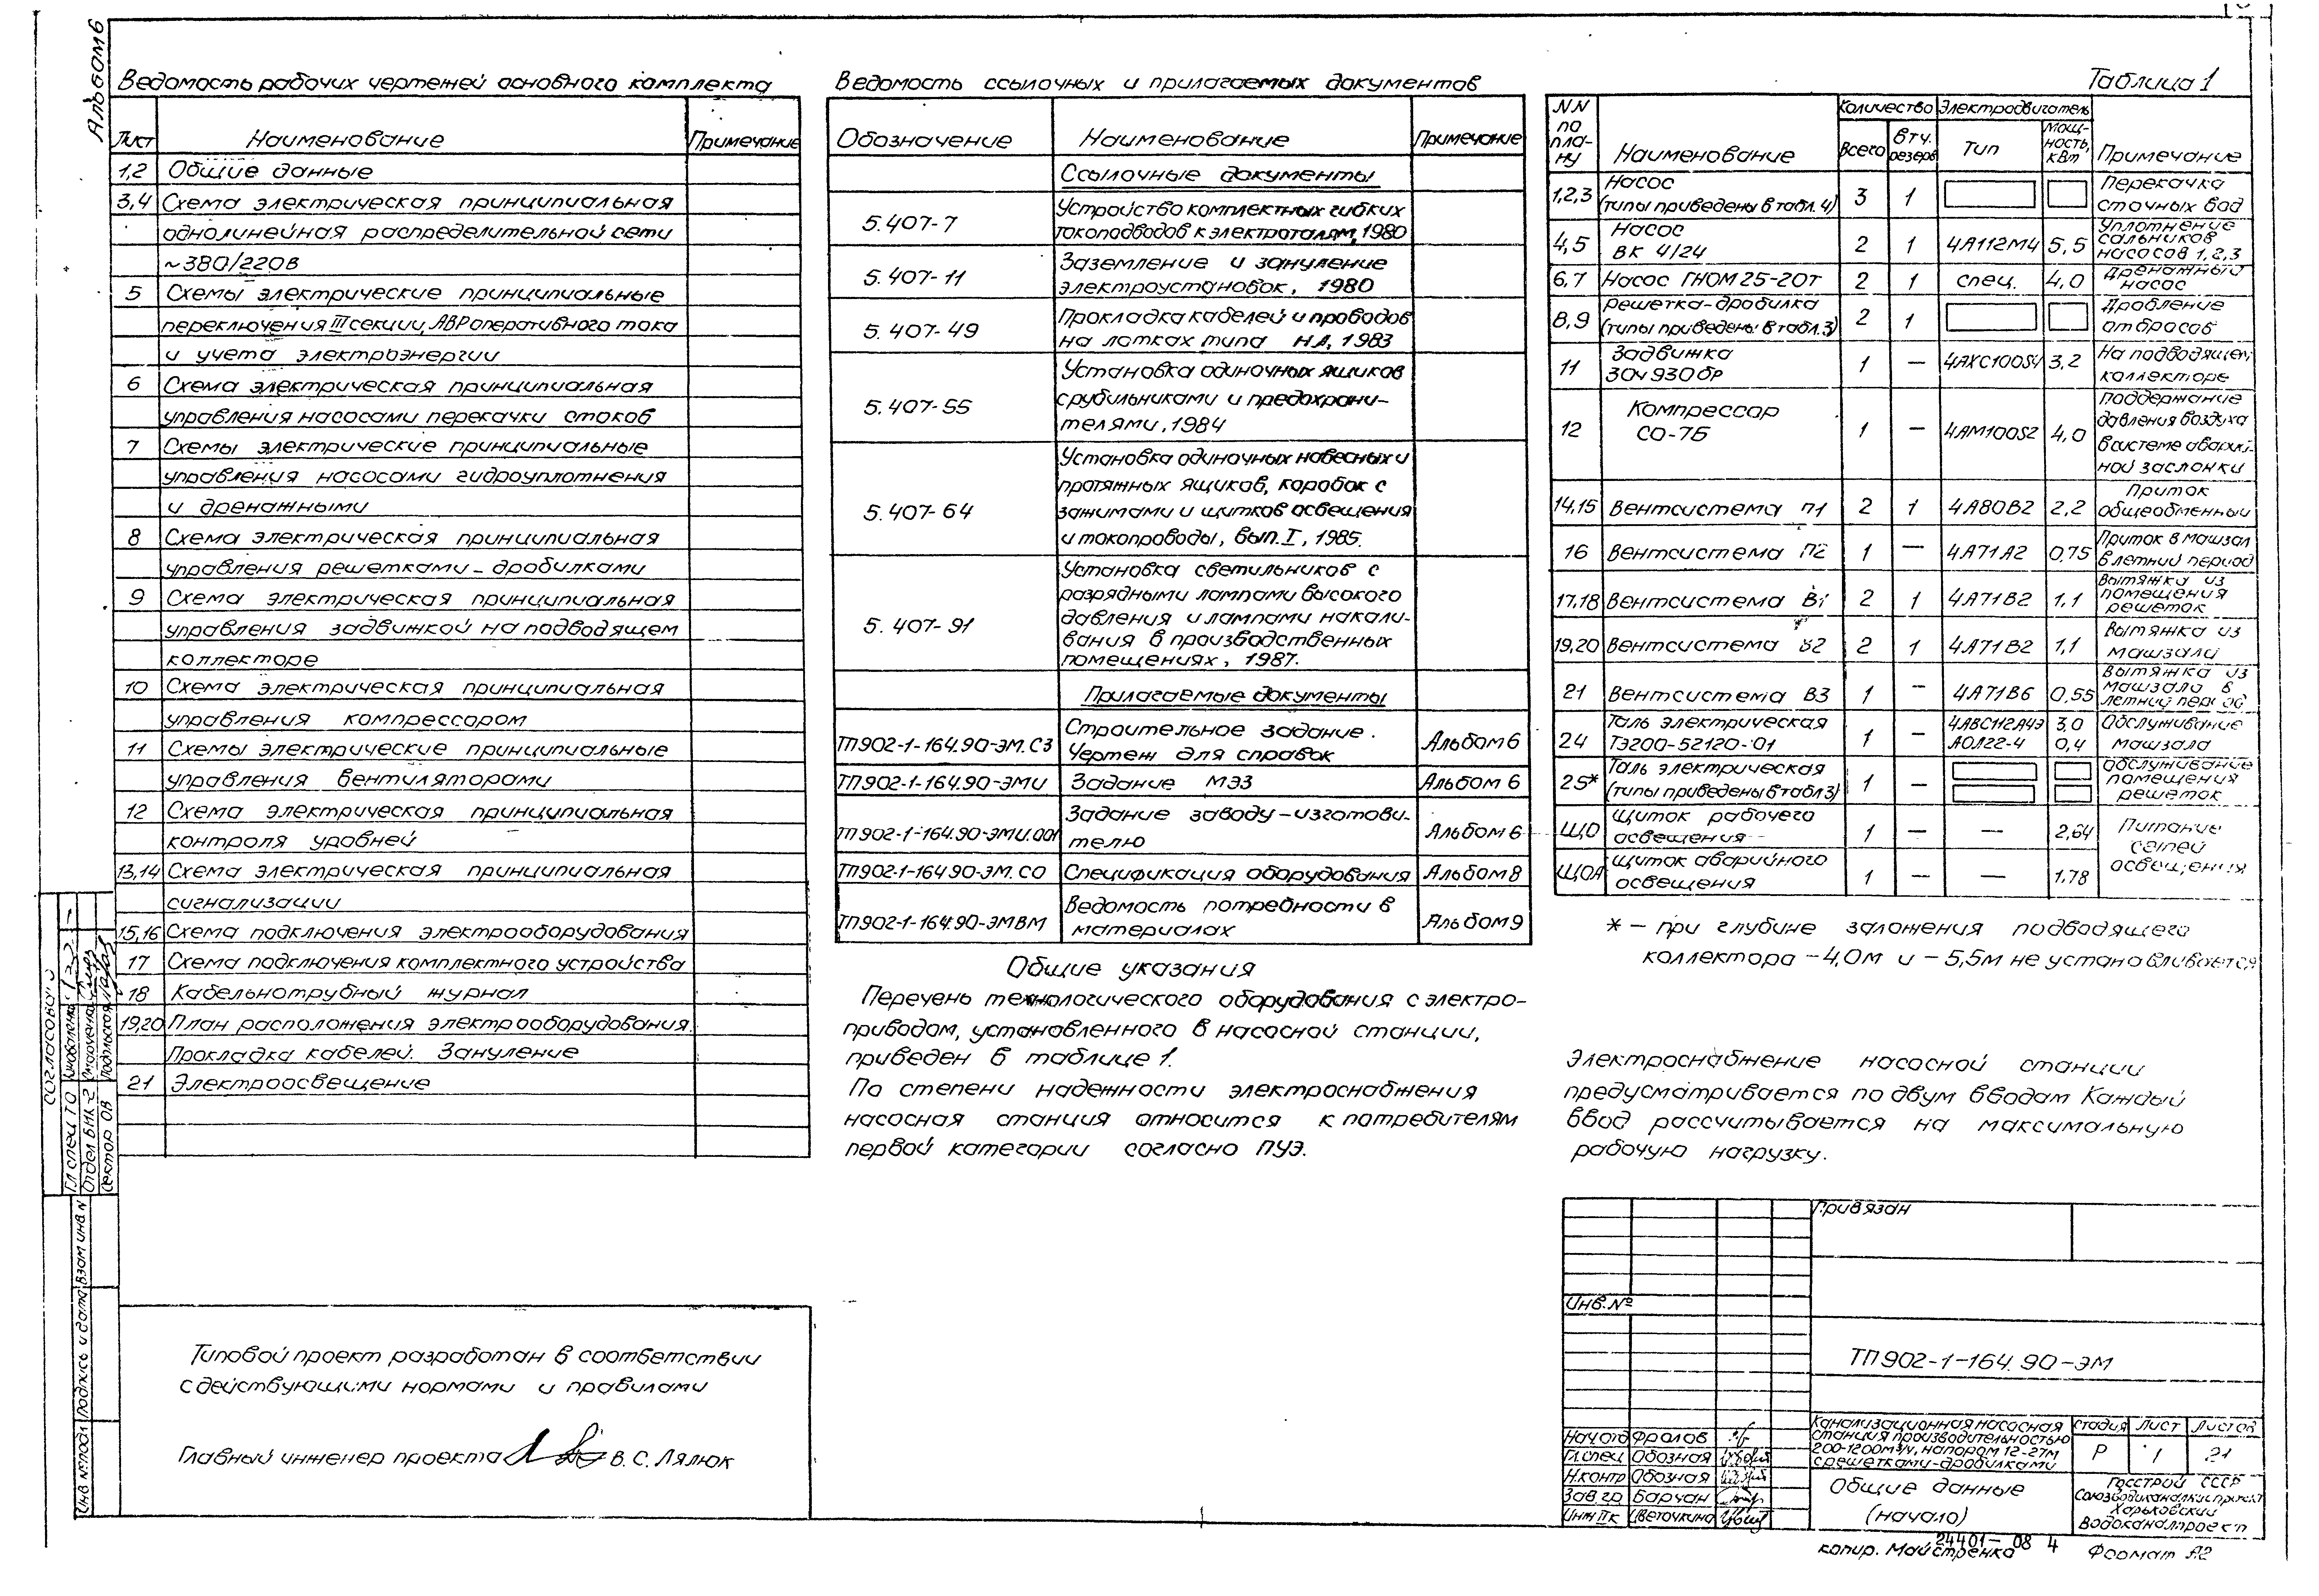 Альбом 6
Ведомость рабочих чертежей основного комплекта
Лист Наименование Примечание
1,2 Общие данные
3,4 Схема электрическая принципиальная
однолинейная распределительной сети
~380/220В
5 Схемы электрические принципиальные
переключения III секции, АВР оперативного тока
и учета электроэнергии
6 Схема электрическая принципиальная
управления насосами перекачки стоков
7 Схемы электрические принципиальные
управления насосами гидроуплотнения
и дренажными
8 Схема электрическая принципиальная
управления решетками-дробилками
9 Схема электрическая принципиальная
управления задвижкой на подводящем
коллекторе
10 Схема электрическая принципиальная
управления компрессором
11 Схемы электрические принципиальные
управления вентиляторами
12 Схема электрическая принципиальная
контроля уровней
13,14 Схема электрическая принципиальная
сигнализации
15,16 Схема подключения электрооборудования
17 Схема подключения комплектного устройства
18 Кабельнотрубный журнал
19,20 План расположения электрооборудования.
Прокладка кабелей. Зануление
21 Электроосвещение
Типовой проект разработан в соответствии
с действующими нормами и правилами
Главный инженер проекта В.С. Лялюк
Ведомость ссылочных и прилагаемых документов
Обозначение Наименование Примечание
Ссылочные документы
5.407-7 Устройство комплектных гибких
токоподводов к электроталям, 1980
5.407-11 Заземление и зануление
электроустановок, 1980
5.407-49 Прокладка кабелей и проводов
на лотках типа НЛ, 1983
5.407-55 Установка одиночных ящиков
с рубильниками и предохрани-
телями, 1984
5.407-64 Установка одиночных навесных и
протяжных ящиков, коробок с
зажимами и щитков освещения
и токопроводы, вып. I, 1985.
5.407-91 Установка светильников с
разрядными лампами высокого
давления и лампами накали-
вания в производственных
помещениях, 1987.
Прилагаемые документы
ТП902-1-164.90-ЭМ.СЗ Строительное задание.
Чертеж для справок Альбом 6
ТП902-1-164.90-ЭМИ Задание МЭЗ Альбом 6
ТП902-1-164.90-ЭМИ.001 Задание заводу-изготови-
телю Альбом 6
ТП902-1-164.90-ЭМ.СО Спецификация оборудования Альбом 8
ТП902-1-164.90-ЭМВМ Ведомость потребности в
материалах Альбом 9
Общие указания
Перечень технологического оборудования с электро-
приводом, установленного в насосной станции,
приведен в таблице 1.
По степени надежности электроснабжения
насосная станция относится к потребителям
первой категории согласно ПУЭ.
Таблица 1
NN по пла-ну Наименование Количество Электродвигатель Примечание
Всего в т.ч. резерв Тип Мощ-ность, кВт
1,2,3 Насос (типы приведены в табл. 4) 3 1 Перекачка сточных вод
4,5 Насос ВК 4/24 2 1 4А112М4 5,5 Уплотнение сальников насосов 1,2,3
6,7 Насос ГНОМ 25-20Т 2 1 спец. 4,0 Дренажный насос
8,9 Решетка-дробилка (типы приведены в табл.3) 2 1 Дробление отбросов
11 Задвижка 30ч930бр 1 — 4АХС100S4 3,2 На подводящем коллекторе
12 Компрессор СО-7Б 1 — 4АМ100S2 4,0 Поддержание давления воздуха в системе аварий-ной заслонки
14,15 Вентсистема П1 2 1 4А80В2 2,2 Приток общеобменный
16 Вентсистема П2 1 — 4А71А2 0,75 Приток в машзал в летний период
17,18 Вентсистема В1 2 1 4А71В2 1,1 Вытяжка из помещения решеток
19,20 Вентсистема В2 2 1 4А71В2 1,1 Вытяжка из машзала
21 Вентсистема В3 1 — 4А71В6 0,55 Вытяжка из машзала в летний период
24 Таль электрическая ТЭ200-52120-01 1 — 4АВС112А4Э 3,0 АОЛ22-4 0,4 Обслуживание машзала
25* Таль электрическая (типы приведены в табл3) 1 — Обслуживание помещения решеток
ЩО Щиток рабочего освещения 1 — — 2,64 Питание сетей освещения
ЩОА Щиток аварийного освещения 1 — — 1,78
* — при глубине заложения подводящего
коллектора -4,0м и -5,5м не устанавливается
Электроснабжение насосной станции
предусматривается по двум вводам Каждый
ввод рассчитывается на максимальную
рабочую нагрузку.
Привязан
Инв. №
ТП902-1-164.90-ЭМ
Нач отд Фролов
Гл.спец Обозная
Н.контр Обозная
Зав.гр Барчан
Инж IIк Цветочкина
Канализационная насосная
станция производительностью
200-1200м³/ч, напором 12-27м
с решетками-дробилками
Стадия Лист Листов
Р 1 21
Общие данные
(начало)
Госстрой СССР
Союзводоканалниипроект
Харьковский
Водоканалпроект
24401-08 4
копир. Майстренко Формат А2
Согласовано
Гл спец ТО
Отдел ВНК-2
Сектор ОВ Подольская
Инв № подл Подпись и дата Взам инв N